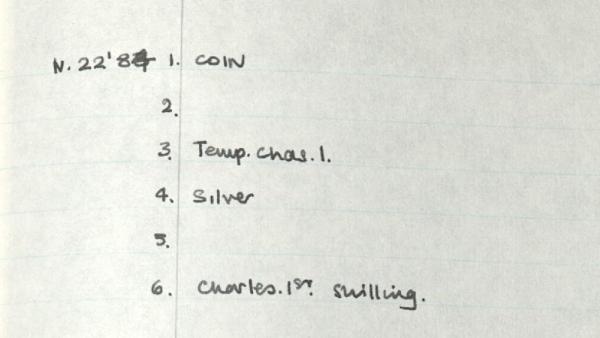 N. 22'84 1. COIN
2.
3. Temp. Chas. 1.
4. Silver
5.
6. Charles. 1st. Shilling.